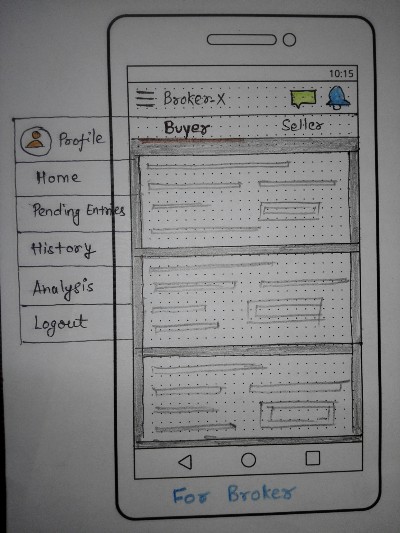 10:15
Broker-X
Buyer Seller
Profile
Home
Pending Entries
History
Analysis
Logout
For Broker